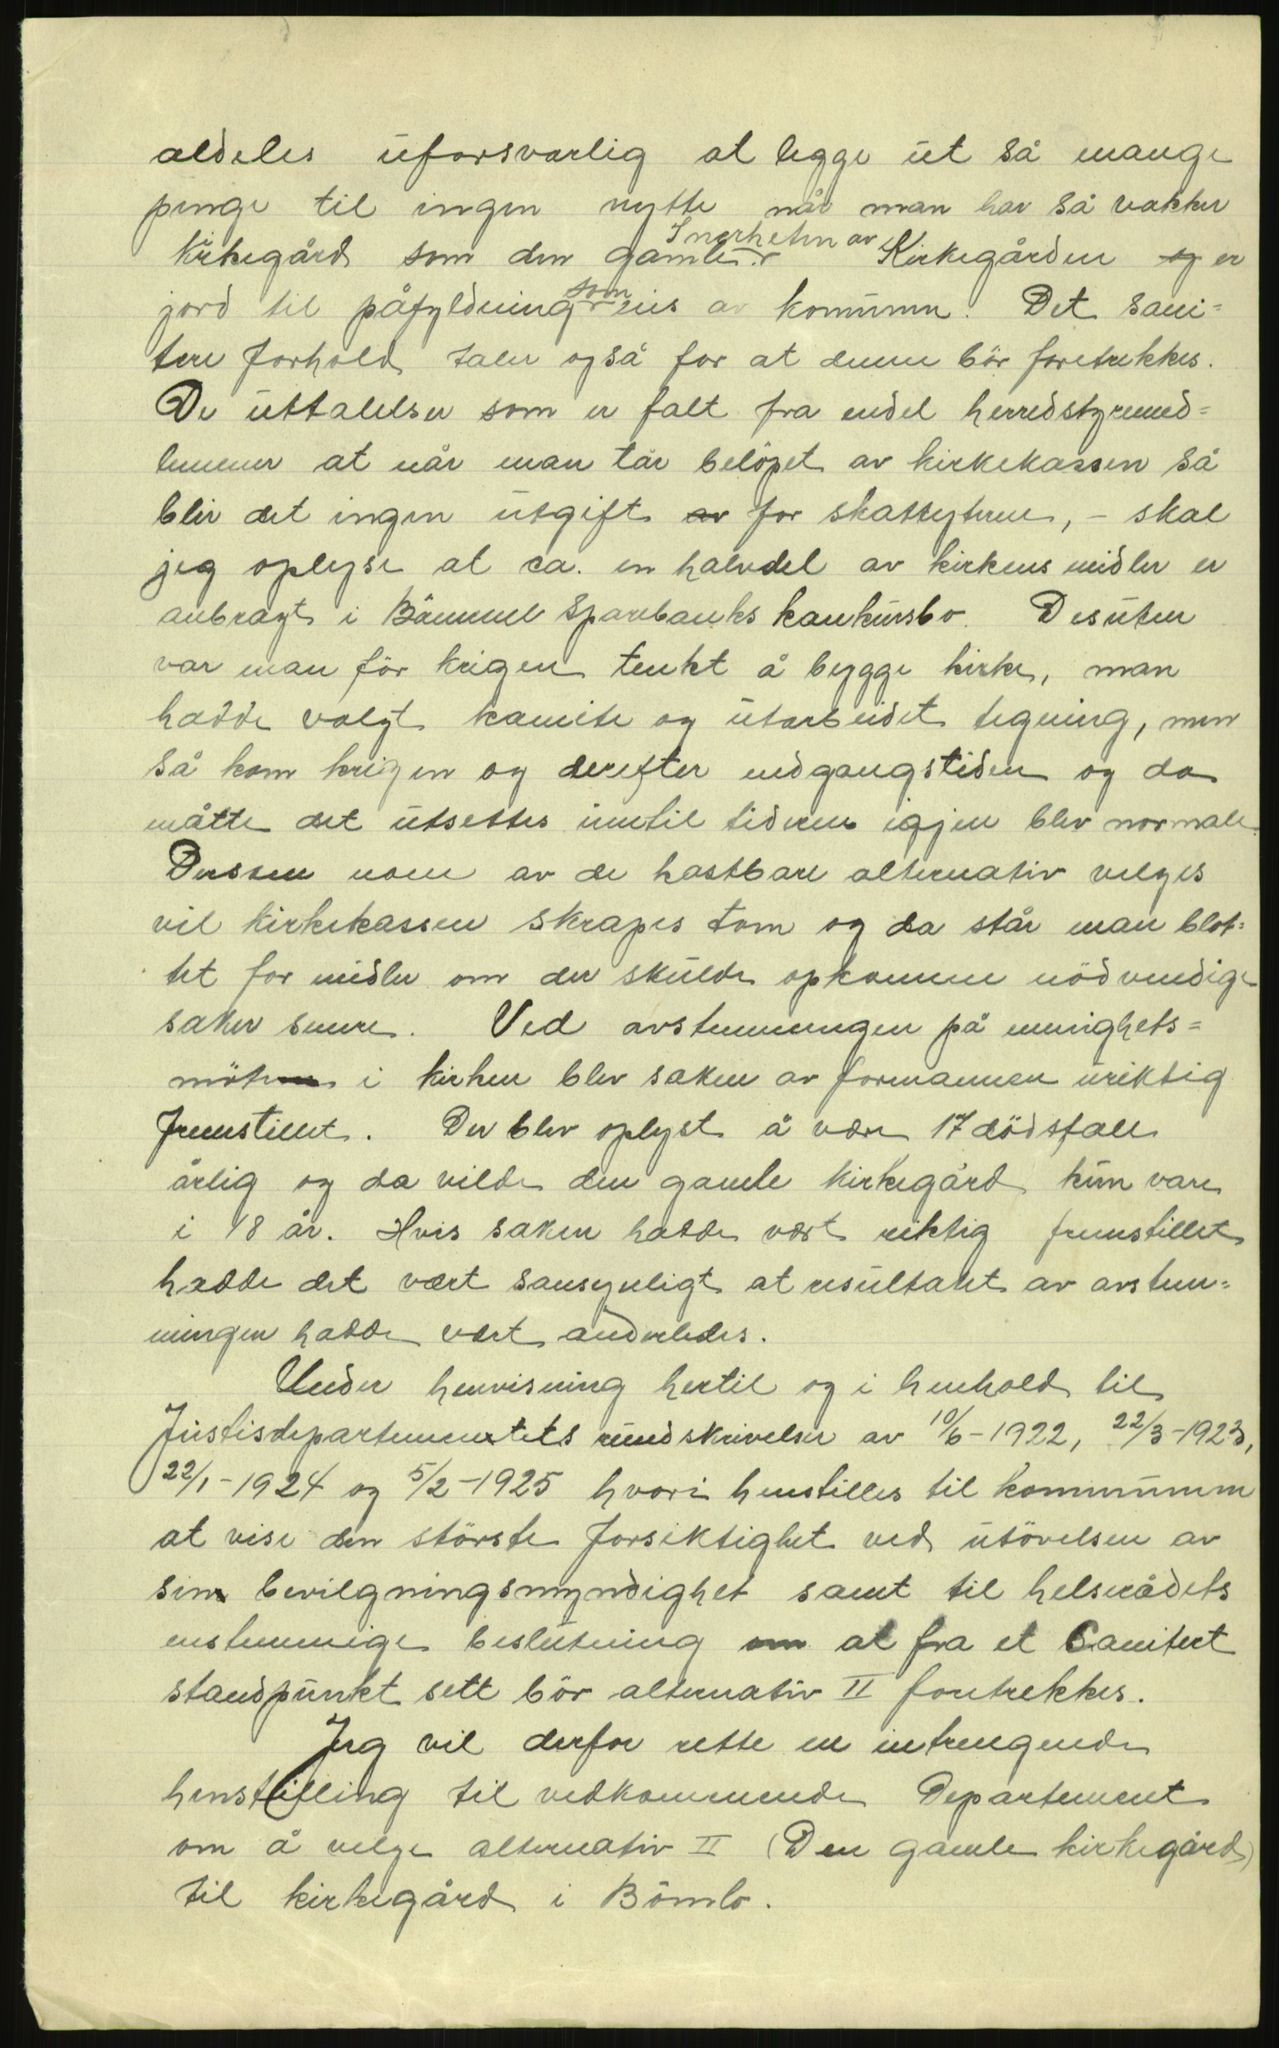 aldeles uforsvarlig at legge ut så mange
penge til ingen nytte når man har så vakker
kirkegård som den gamle. I nærheten av Kirkegården og er
jord til påfyldning som eies av komunen. Det sani-
tære forhold taler også for at denne bör foretrekkes.
De uttalelser som er falt fra endel herredstyremed-
lemmer at når man tar belöpet av kirkekassen så
blir det ingen utgift av for skatteyterne, - skal
jeg oplyse at ca. en halvdel av kirkens midler er
anbragt i Bömmel Sparebanks konkursbo. Desuten
var man för krigen tenkt å bygge kirke, man
hadde valgt komite og utarbeidet tegning, men
så kom krigen og derefter nedgangstiden og da
måtte det utsettes inntil tiderne igjen blev normale.
Dersom noen av de kostbare alternativ velges
vil kirkekassen skrapes tom og da står man blot-
tet for midler om der skulde opkomme nödvendige
saker senere. Ved avstemningen på menighets-
möte i kirken blev saken av formannen uriktig
fremstillet. Der blev oplyst å være 17 dödsfall
årlig og da vilde den gamle kirkegård kun vare
i 18 år. Hvis saken hadde vært riktig fremstillet
hadde det vært sansynligt at resultatet av avstem-
ningen hadde vært anderledes.
Under henvisning hertil og i henhold til
Justisdepartementets rundskrivelser av 10/6-1922, 22/3-1923,
22/1-1924 og 5/2-1925 hvori henstilles til kommunene
at vise den störste forsiktighet ved utövelsen av
sin bevilgningsmyndighet samt til helserådets
enstemmige beslutning om at fra et Sanitært
standpunkt sett bör alternativ II foretrekkes.
Jeg vil derfor rette en intrengende
henstilling til vedkommende Departement
om å velge alternativ II (Den gamle kirkegård)
til kirkegård i Bömlo.